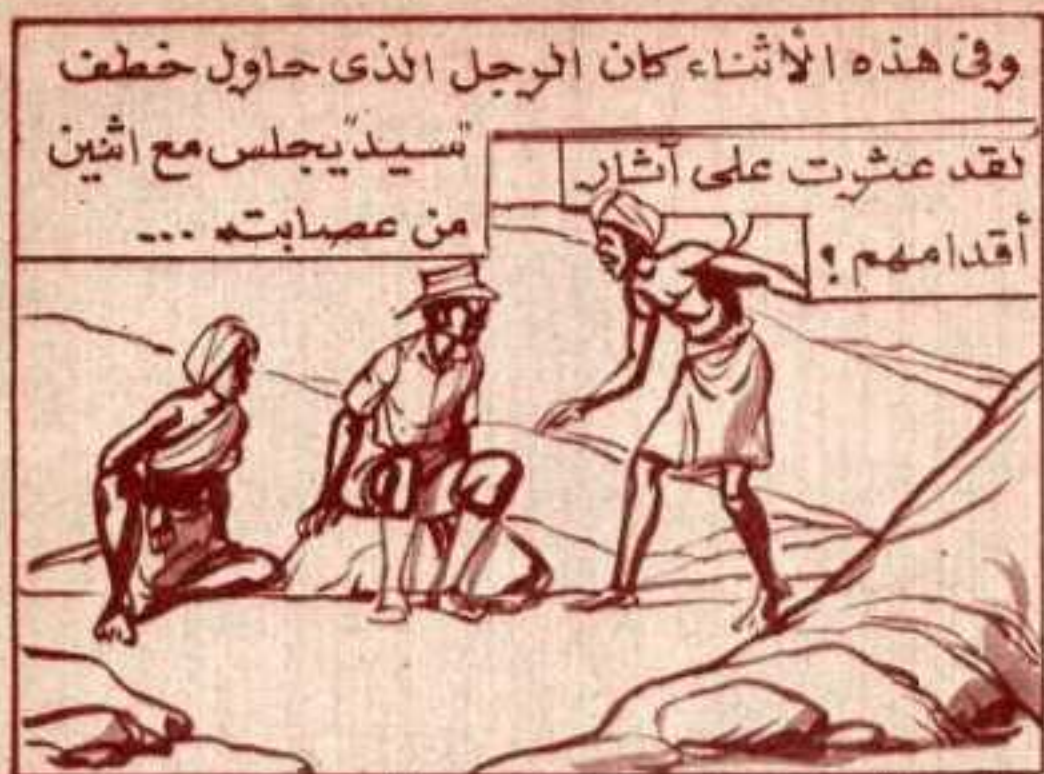 وفى هذه الأثناء كان الرجل الذى حاول خطف
"سيد" يجلس مع اثنين
من عصابته ...
لقد عثرت على آثار
أقدامهم ؟